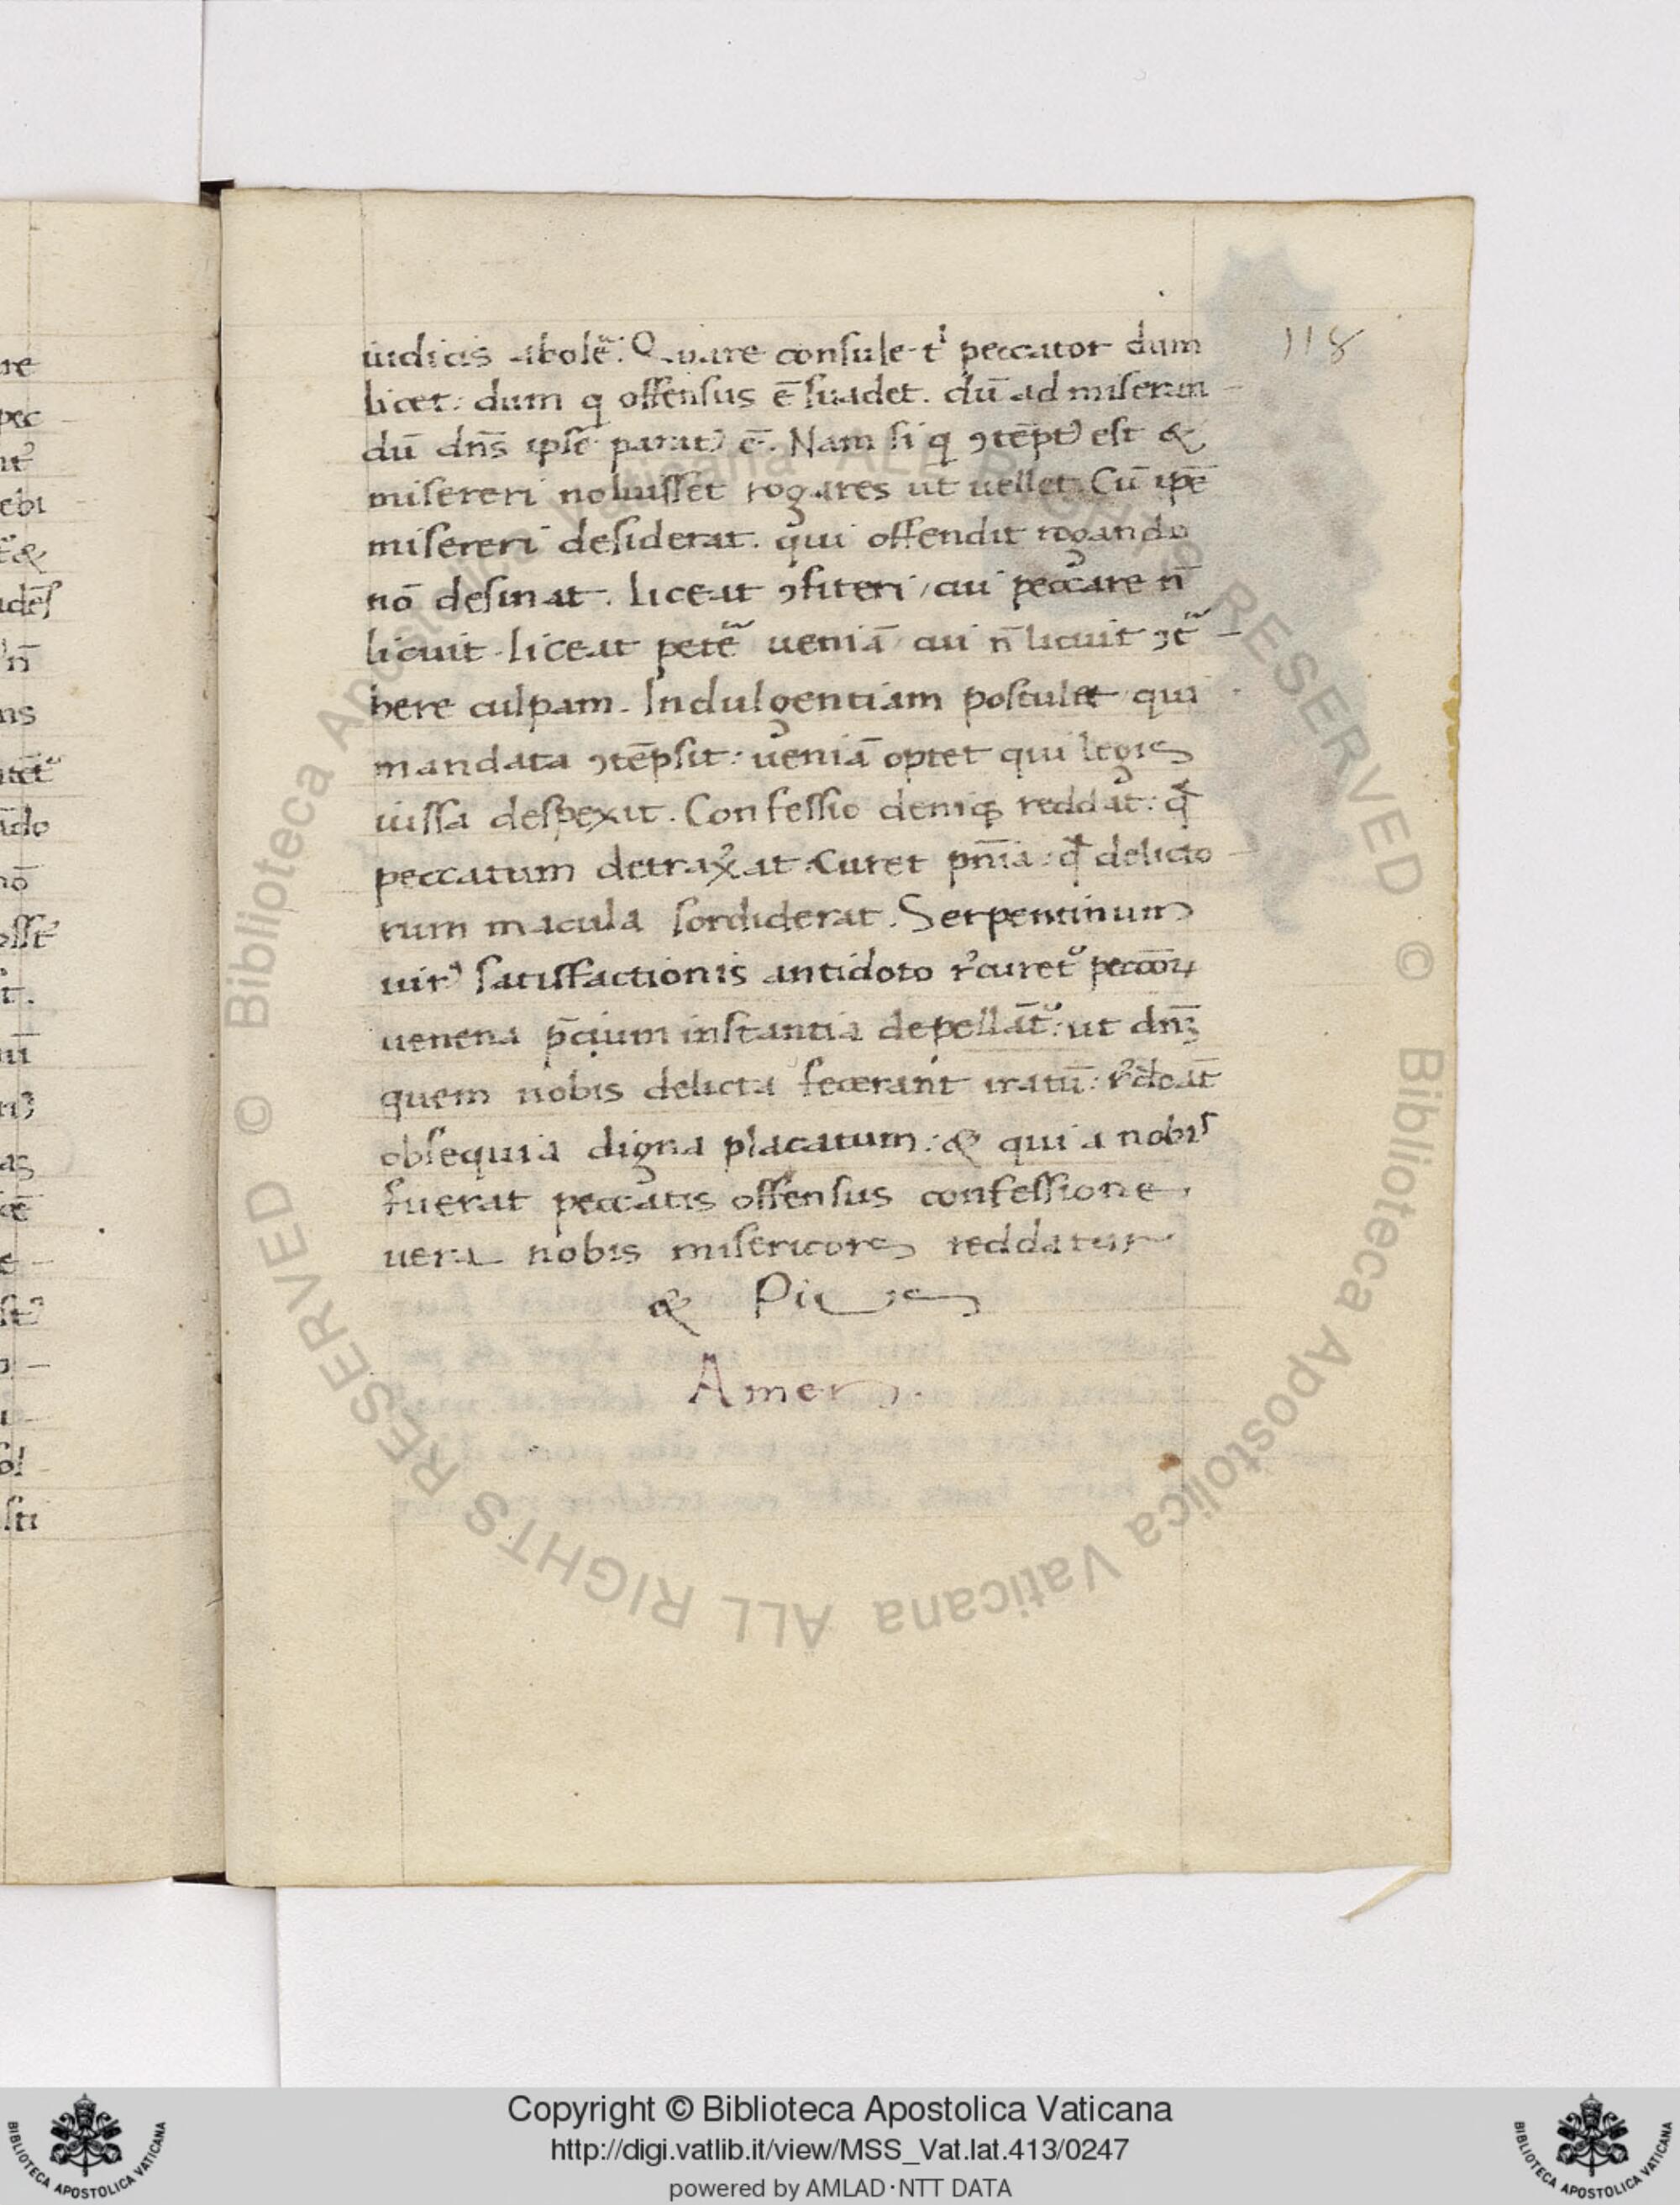 118
iudicis abolē. Quare consule tⁱ peccator dum
licet: dum q offensus ē suadet. dū ad miseran
dū dn̄s ipse parat᾽ ē. Nam si q ꝯtēpt᾽ est &
misereri noluisset rogares ut uellet. Cū ipē
misereri desiderat. qui offendit rogando
nō desinat. liceat ꝯfiteri / cui peccare n̄
licuit. liceat petē ueniā cui n̄ licuit ꝯt̄
here culpam. Indulgentiam postulet qui
mandata ꝯtēpsit: ueniā optet qui legis
iussa despexit. Confessio deniqꝫ reddat: qđ
peccatum detrax᾽at. Curet pn̄ia: qđ delicto
rum macula sordiderat. Serpentinum
uir᾽ satisfactionis antidoto r᾽curet᾽ peccōꝝ
uenena p̄cium instantia depellāt᾽: ut dn̄ꝫ
quem nobis delicta fecerant iratū: r᾽deāt
obsequia digna placatum: & qui a nobis
fuerat peccatis offensus confessione
uera nobis misericors reddatur
& Pius
Amen.
© Biblioteca Apostolica Vaticana ALL RIGHTS RESERVED © Biblioteca Apostolica Vaticana ALL RIGHTS RESERVED
Copyright © Biblioteca Apostolica Vaticana
http://digi.vatlib.it/view/MSS_Vat.lat.413/0247
powered by AMLAD·NTT DATA
BIBLIOTECA APOSTOLICA VATICANA
BIBLIOTECA APOSTOLICA VATICANA